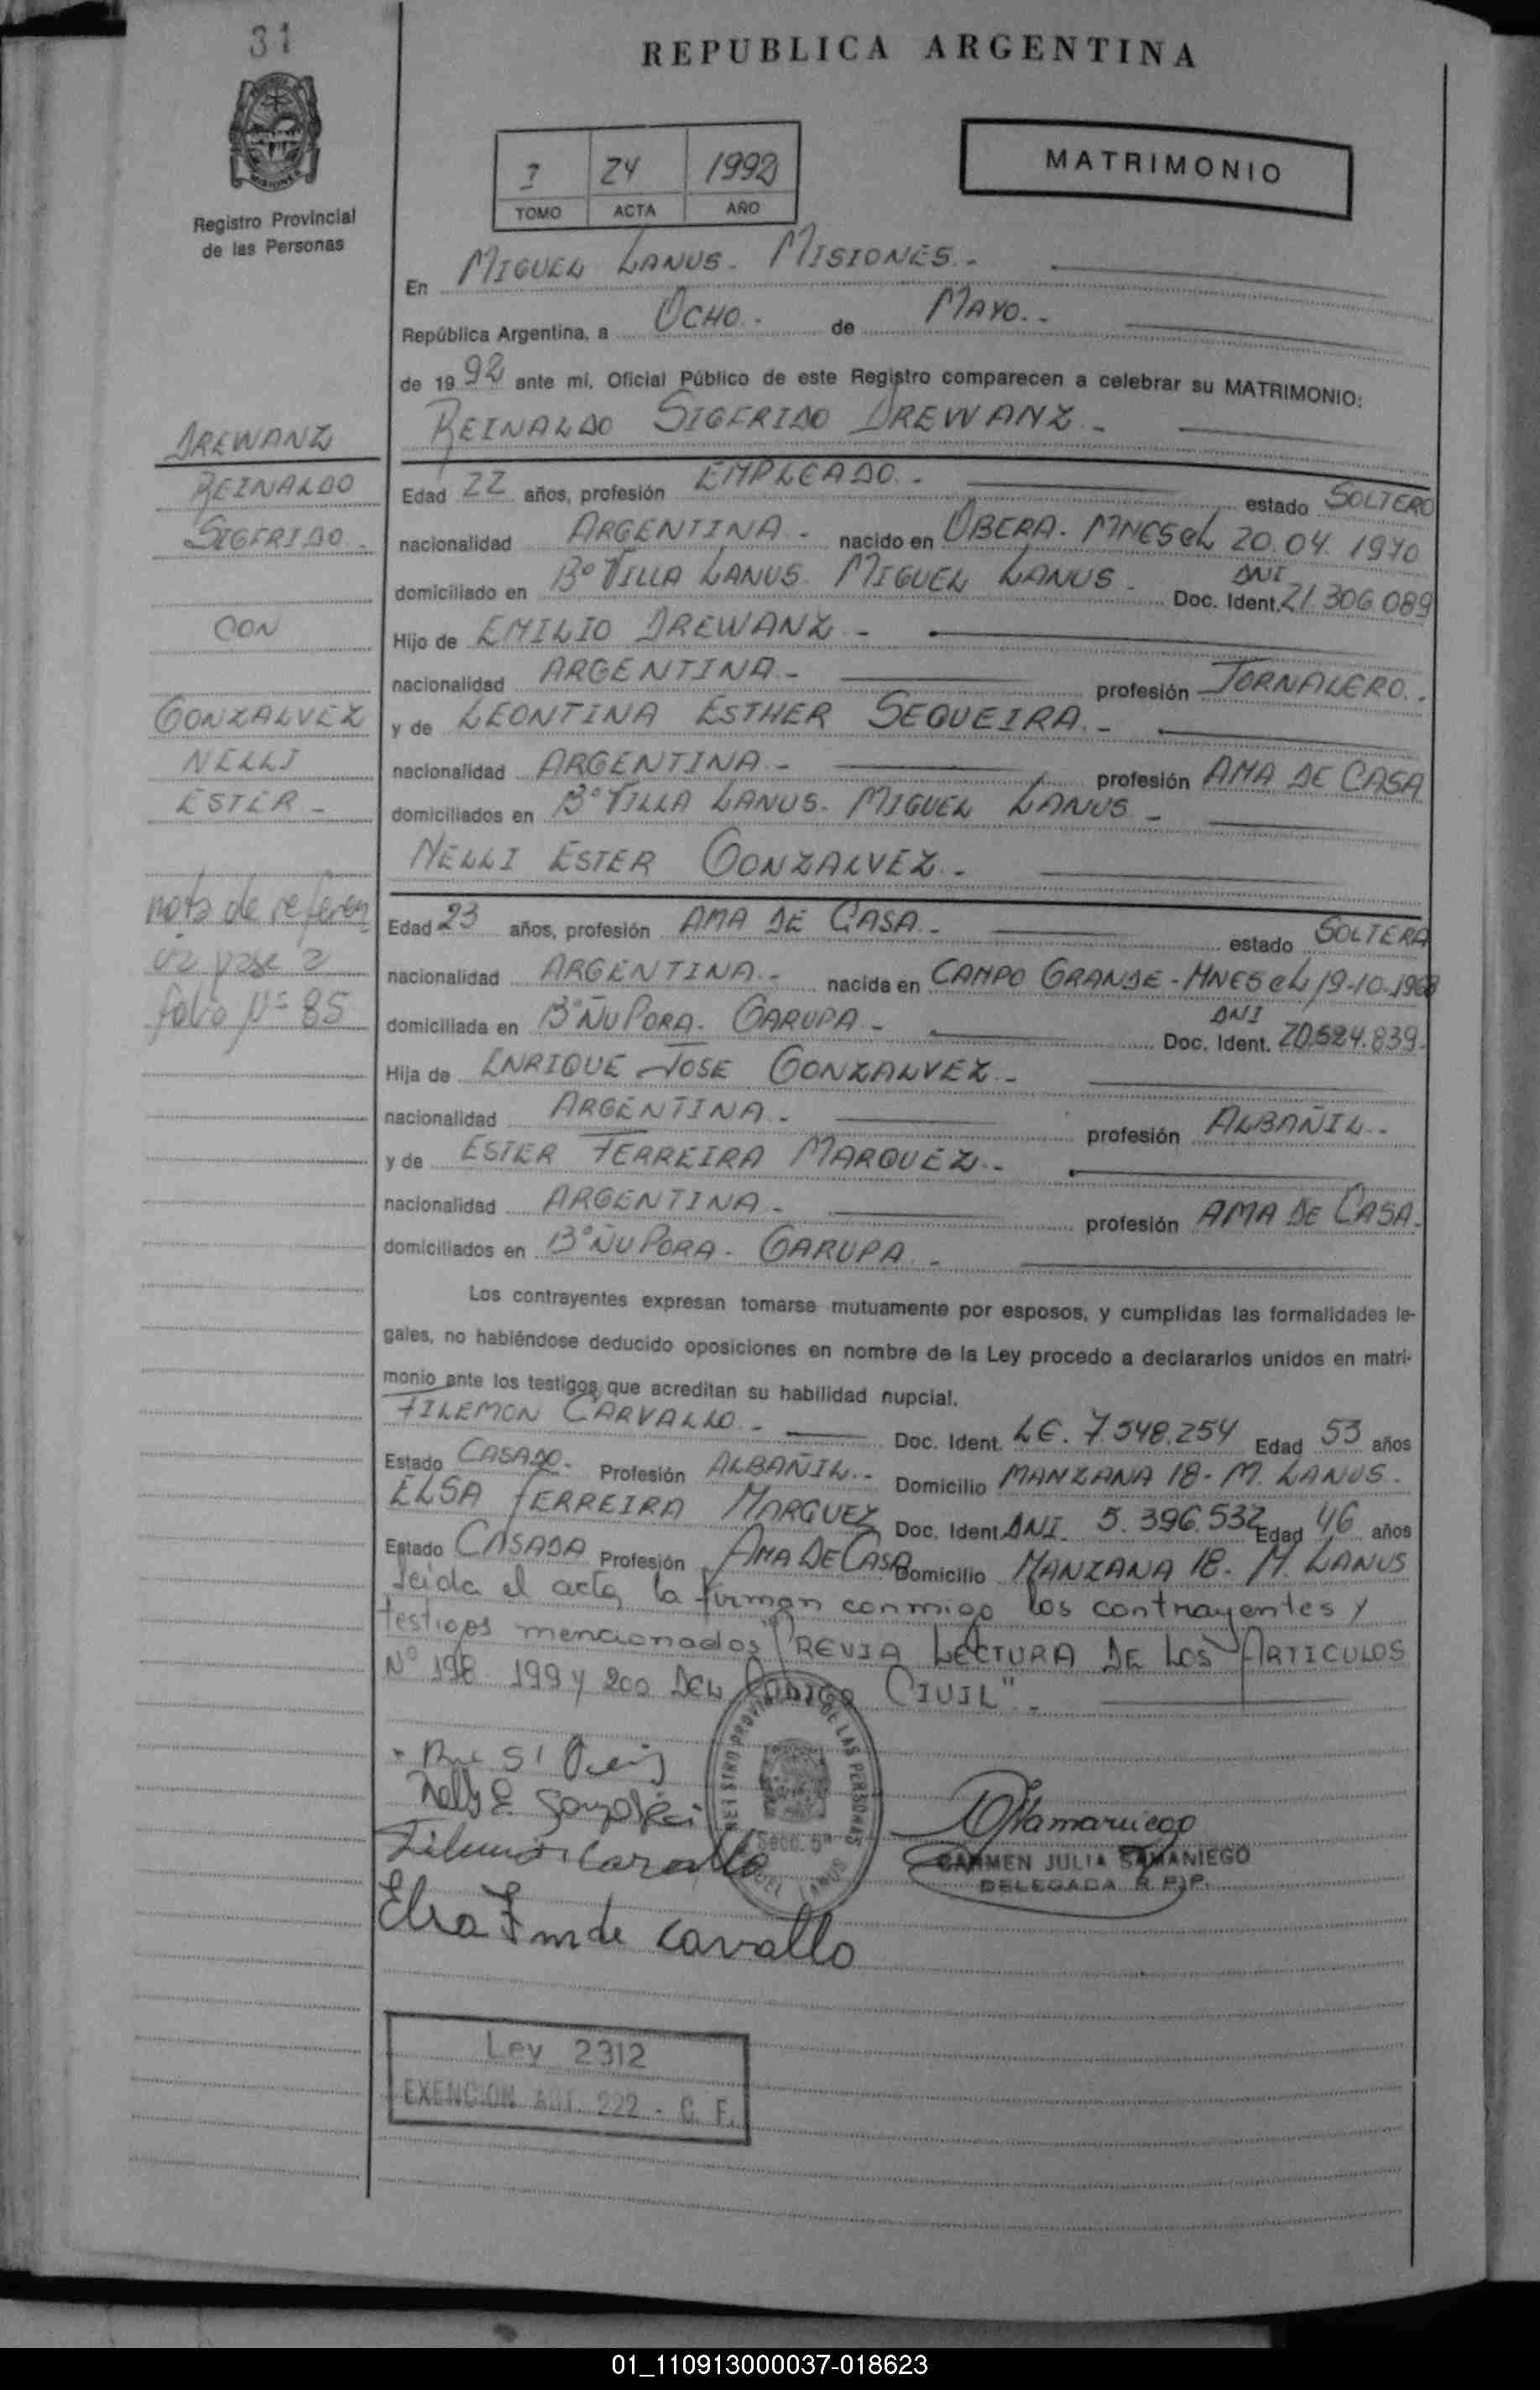 31
REPUBLICA ARGENTINA
Registro Provincial
de las Personas
24 1992
TOMO ACTA AÑO
MATRIMONIO
En MIGUEL LANUS - MISIONES.-
República Argentina, a OCHO.- de MAYO.-
de 1992 ante mí, Oficial Público de este Registro comparecen a celebrar su MATRIMONIO:
REINALDO SIGFRIDO DREWANZ.-
DREWANZ
REINALDO
SIGFRIDO.-
CON
GONZALVEZ
NELLI
ESTER.-
nota de referen
cia pase a
folio Nº 85
Edad 22 años, profesión EMPLEADO.- estado SOLTERO
nacionalidad ARGENTINA.- nacido en OBERA - MNES el 20.04.1970
domiciliado en Bº VILLA LANUS. MIGUEL LANUS.- Doc. Ident. DNI 21.306.089
Hijo de EMILIO DREWANZ.-
nacionalidad ARGENTINA.- profesión JORNALERO.-
y de LEONTINA ESTHER SEQUEIRA.-
nacionalidad ARGENTINA.- profesión AMA DE CASA
domiciliados en Bº VILLA LANUS - MIGUEL LANUS.-
NELLI ESTER GONZALVEZ.-
Edad 23 años, profesión AMA DE CASA.- estado SOLTERA
nacionalidad ARGENTINA.- nacida en CAMPO GRANDE - MNES el 19-10-1968
domiciliada en Bº ÑU PORA - GARUPA.- Doc. Ident. DNI 20.524.839.
Hija de ENRIQUE JOSE GONZALVEZ.-
nacionalidad ARGENTINA.- profesión ALBAÑIL.-
y de ESTER FERREIRA MARQUEZ.-
nacionalidad ARGENTINA.- profesión AMA DE CASA.
domiciliados en Bº ÑU PORA - GARUPA.-
Los contrayentes expresan tomarse mutuamente por esposos, y cumplidas las formalidades le-
gales, no habiéndose deducido oposiciones en nombre de la Ley procedo a declararlos unidos en matri-
monio ante los testigos que acreditan su habilidad nupcial.
FILEMON CARVALLO.- Doc. Ident. LE. 7.548.254 Edad 53 años
Estado CASADO.- Profesión ALBAÑIL.- Domicilio MANZANA 18 - M. LANUS.-
ELSA FERREIRA MARQUEZ Doc. Ident DNI. 5.396.532 Edad 46 años
Estado CASADA Profesión AMA DE CASA Domicilio MANZANA 18 - M. LANUS
Leida el acta, la firman conmigo los contrayentes y
testigos mencionados "PREVIA LECTURA DE LOS ARTICULOS
Nº 198 199 y 200 DEL CODIGO CIVIL".-
REGISTRO PROVINCIAL DE LAS PERSONAS
Secc. 5ª
MIGUEL LANUS
Nelly E Gonzalvez
Filemon Carvallo
Elsa F m de Carvallo
CARMEN JULIA SAMANIEGO
DELEGADA R.P.P.
Ley 2312
EXENCION ART. 222 - C. F.
01_110913000037-018623